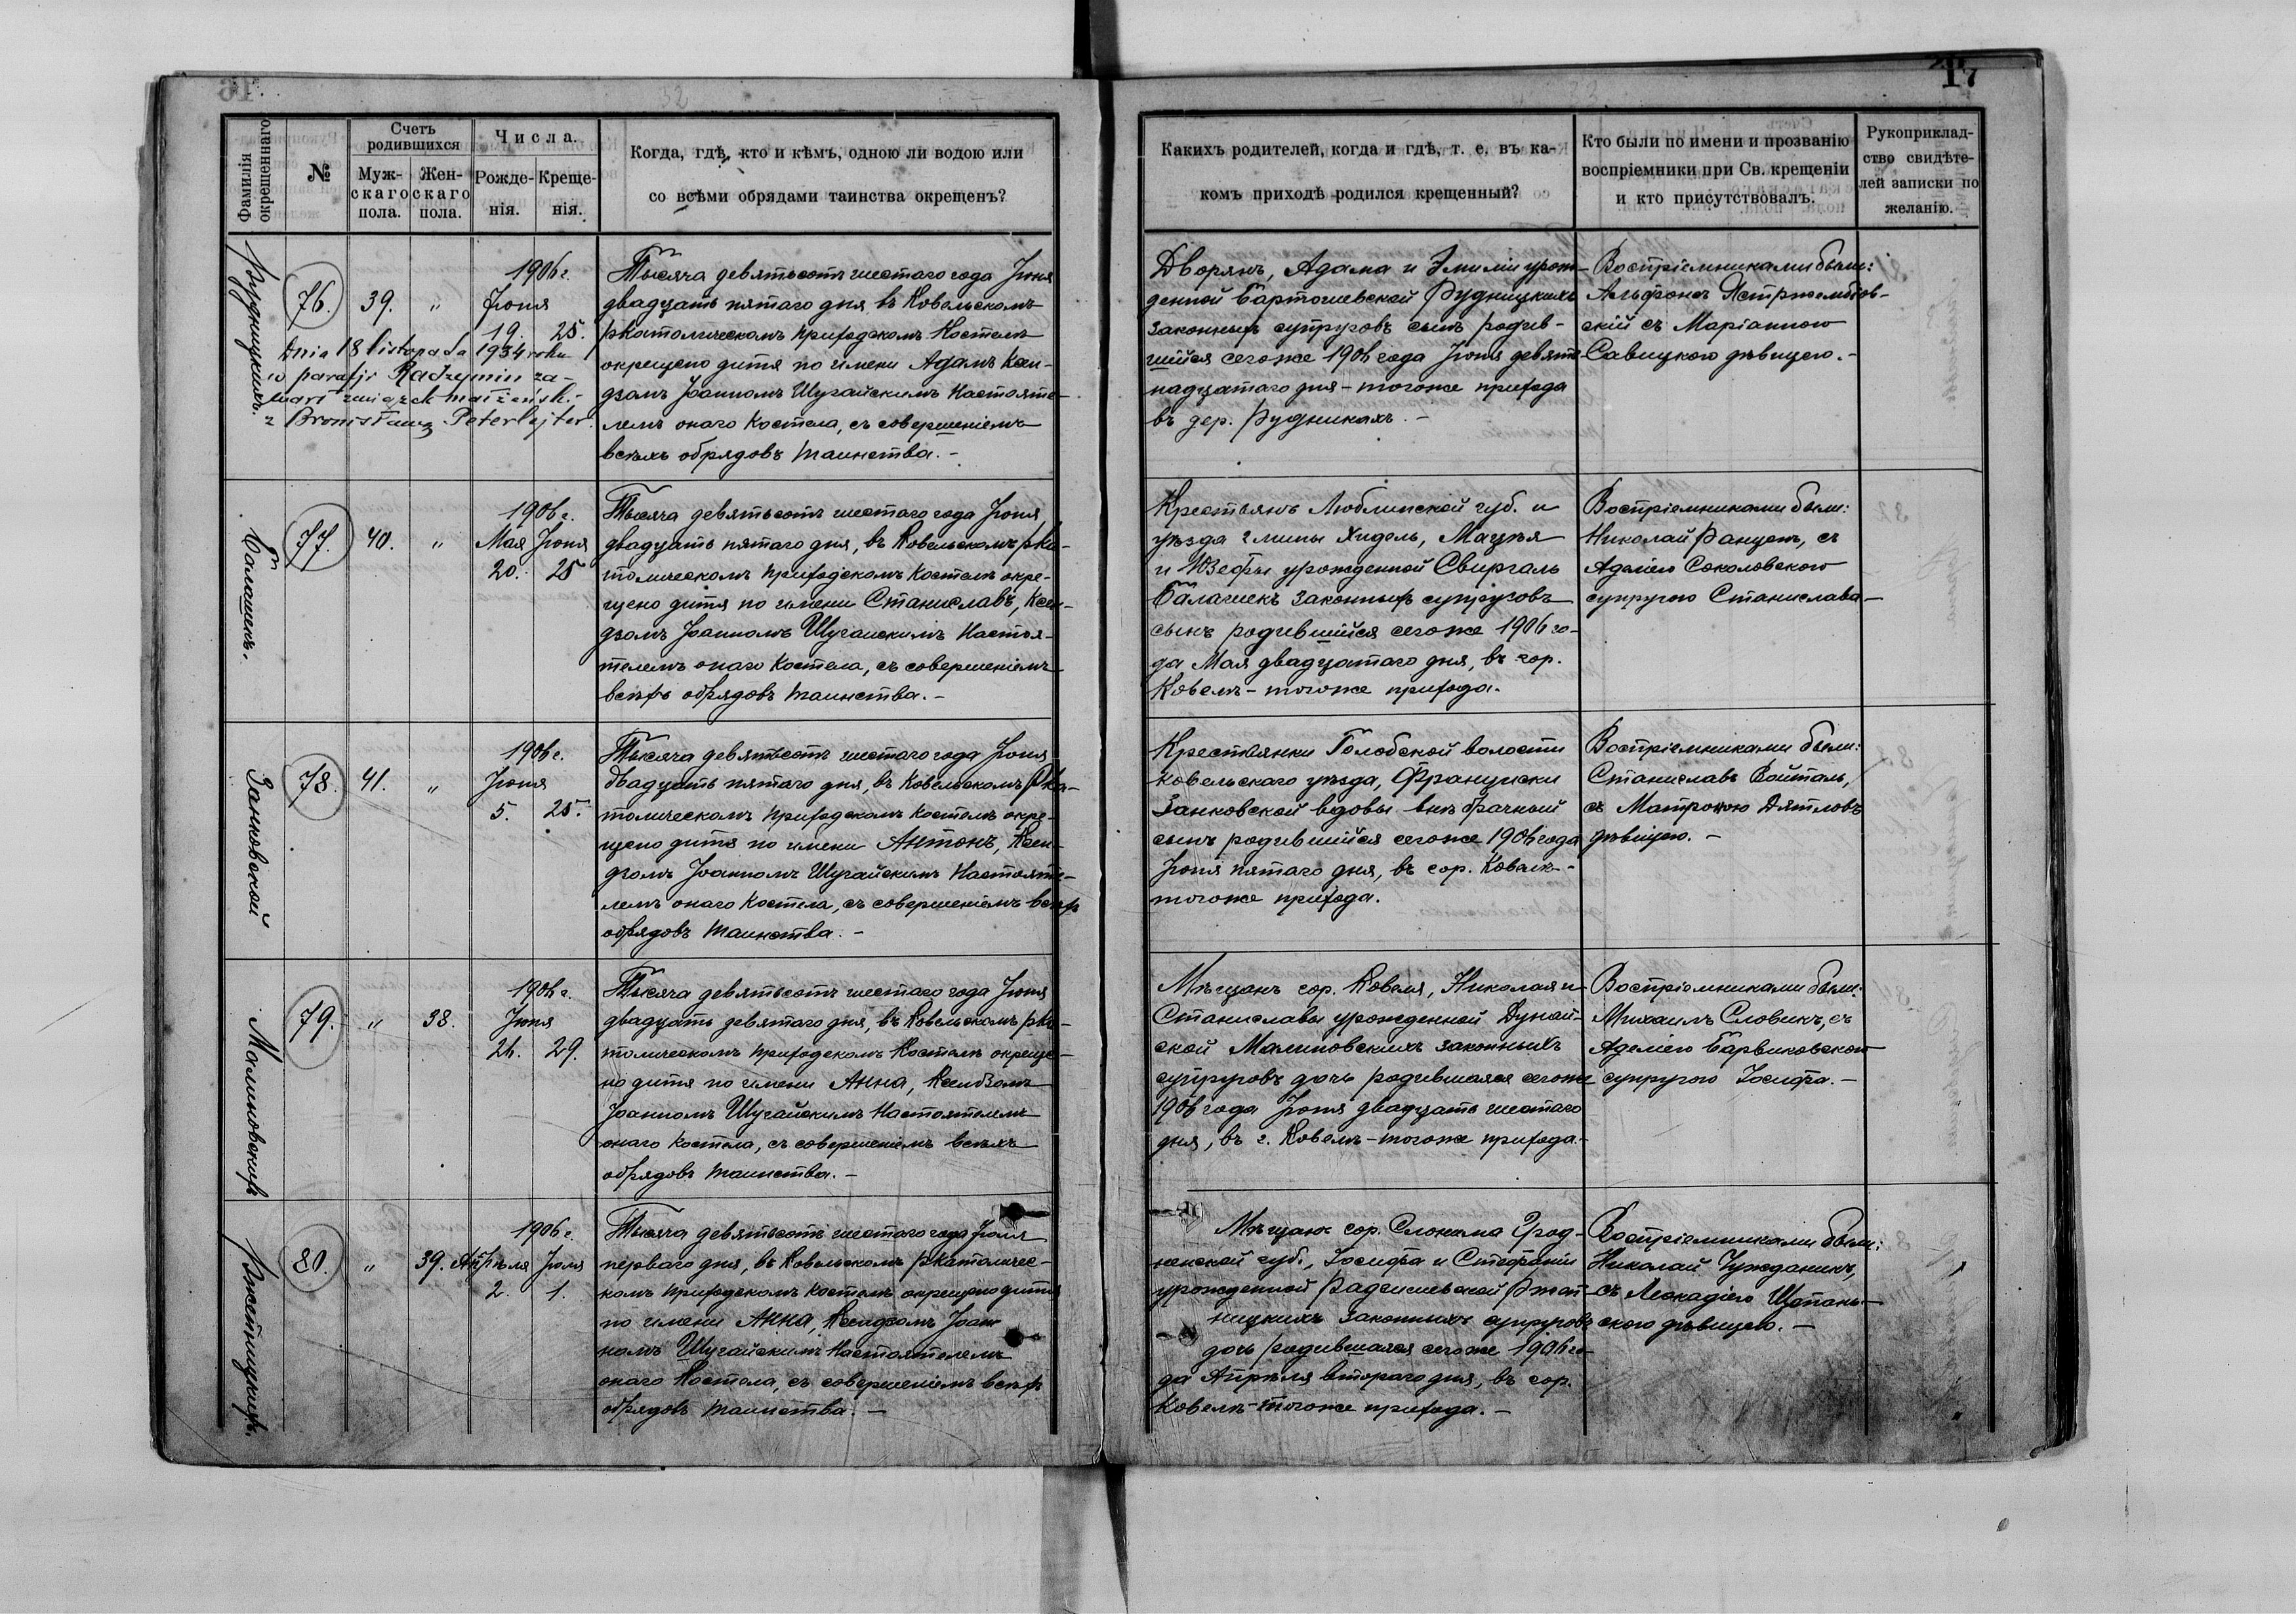 17
Фамилія окрещеннаго
№
Счетъ родившихся
Муж-
скаго
пола.
Жен-
скаго
пола.
Числа.
Рожде-
нія.
Креще-
нія.
Когда, гдѣ, кто и кѣмъ, одною ли водою или
со всѣми обрядами таинства окрещенъ?
Какихъ родителей, когда и гдѣ, т. е. въ ка-
комъ приходѣ родился крещенный?
Кто были по имени и прозванію
воспріемники при Св. крещеніи
и кто присутствовалъ.
Рукоприклад-
ство свидѣте-
лей записки по
желанію.
Рудницкихъ.
76.
39.
"
1906 г.
Іюня
19. 25.
Dnia 18 listopada 1934 roku
w parafji Radzymin za-
warł związek małżeńsk.-
z Bronisławą Peterlejter.
Тысяча девятьсотъ шестаго года Іюня
двадцать пятаго дня, въ Ковельскомъ
р.католическомъ приходскомъ Костелѣ
окрещено дитя по имени Адамъ Ксен-
дзомъ Іоанномъ Шугайскимъ Настояте-
лемъ онаго Костела, съ совершеніемъ
всѣхъ обрядовъ таинства. –
Дворянъ, Адама и Эмиліи урож-
денной Бартошевской Рудницкихъ
законныхъ супруговъ сынъ родив-
шійся сегоже 1906 года Іюня девят-
надцатаго дня – тогоже прихода
въ дер. Рудникахъ. –
Воспріемниками были:
Альфонсъ Ястржембов-
скій съ Маріанною
Савицкою дѣвицею. –
Балашекъ.
77.
40.
"
1906 г.
Мая Іюня
20. 25
Тысяча девятьсотъ шестаго года Іюня
двадцать пятаго дня, въ Ковельскомъ р.ка-
толическомъ приходскомъ Костелѣ окре-
щено дитя по имени Станиславъ, Ксен-
дзомъ Іоанномъ Шугайскимъ Настоя-
телемъ онаго Костела, съ совершеніемъ
всѣхъ обрядовъ таинства. –
Крестьянъ Люблинской губ. и
уѣзда гмины Хидель, Мацѣя
и Юзефы урожденной Свиргаль
Балашекъ законныхъ супруговъ
сынъ родившійся сегоже 1906 го-
да Мая двадцатаго дня, въ гор.
Ковелѣ – тогоже прихода.
Воспріемниками были:
Николай Ранцевъ, съ
Аделіею Соколовскою
супругою Станислава –
Занковской
78.
41.
"
1906 г.
Іюня
5. 25.
Тысяча девятьсотъ шестаго года Іюня
двадцать пятаго дня, въ Ковельскомъ р.ка-
толическомъ приходскомъ Костелѣ окре-
щено дитя по имени Антонъ, Ксен-
дзомъ Іоанномъ Шугайскимъ Настояте-
лемъ онаго Костела, съ совершеніемъ всѣхъ
обрядовъ таинства. –
Крестьянки Голобской волости
Ковельскаго уѣзда, Франциски
Занковской вдовы внѣбрачный
сынъ родившійся сегоже 1906 года
Іюня пятаго дня, въ гор. Ковелѣ –
тогоже прихода.
Воспріемниками были:
Станиславъ Войталь,
съ Матроною Дятловъ
дѣвицею. –
Малиновскихъ
79.
"
38.
1906 г.
Іюня
26. 29.
Тысяча девятьсотъ шестаго года Іюня
двадцать девятаго дня, въ Ковельскомъ р.ка-
толическомъ приходскомъ Костелѣ окреще-
но дитя по имени Анна, Ксендзомъ
Іоанномъ Шугайскимъ Настоятелемъ
онаго Костела, съ совершеніемъ всѣхъ
обрядовъ таинства. –
Мѣщанъ гор. Ковеля, Николая и
Станиславы урожденной Дунай-
ской Малиновскихъ законныхъ
супруговъ дочь родившаяся сегоже
1906 года Іюня двадцать шестаго
дня, въ г. Ковелѣ – тогоже прихода. –
Воспріемниками были:
Михаилъ Словикъ, съ
Аделіею Барвиковскою
супругою Іосифа. –
Ржетицкихъ.
80.
"
39.
1906 г.
Апрѣля Іюля
2. 1.
Тысяча девятьсотъ шестаго года Іюля
перваго дня, въ Ковельскомъ р.католичес-
комъ приходскомъ Костелѣ окрещено дитя
по имени Анна, Ксендзомъ Іоан-
номъ Шугайскимъ Настоятелемъ
онаго Костела, съ совершеніемъ всѣхъ
обрядовъ таинства. –
Мѣщанъ гор. Слонима Грод-
ненской губ., Іосифа и Стефаніи
урожденной
ницкихъ законныхъ супруговъ
дочь родившаяся сегоже 1906 го-
да Апрѣля втораго дня, въ гор.
Ковелѣ – тогоже прихода. –
Воспріемниками были:
Николай Чужданикъ,
съ Леокадіею Щепань-
скою дѣвицею. –